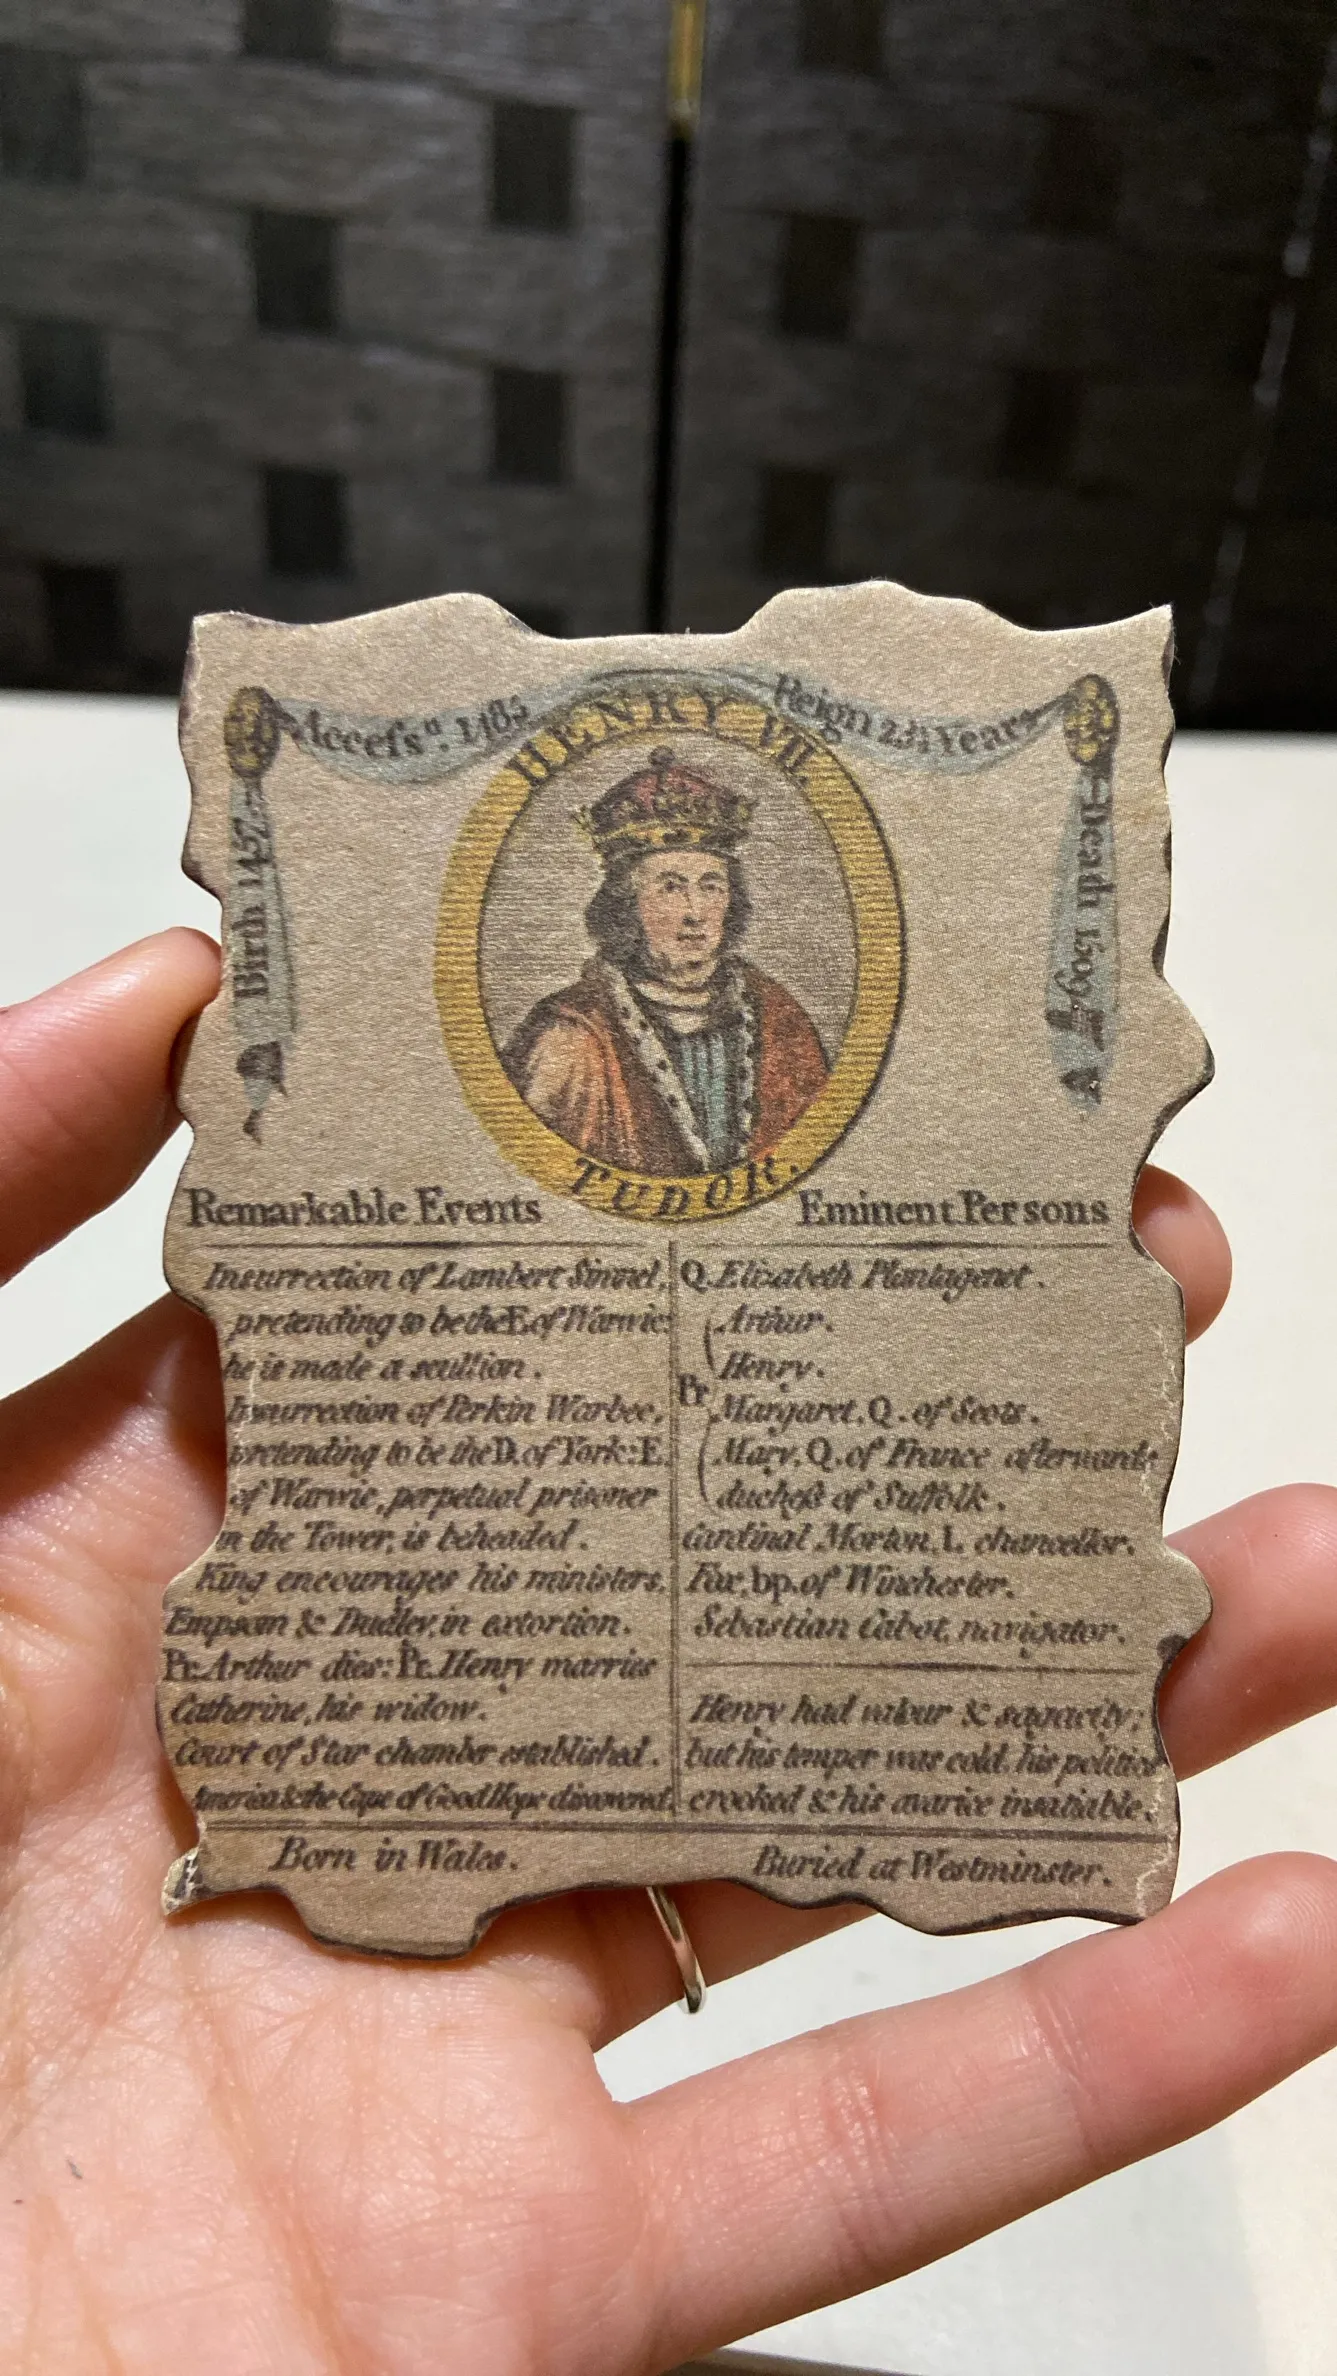 Accefsn. 1485
Reign 23¾ Years
HENRY VII.
Birth 1457.
Death 1509
TUDOR.
Remarkable Events
Insurrection of Lambert Simnel,
pretending to be the E. of Warwic:
he is made a scullion.
Insurrection of Perkin Warbec,
pretending to be the D. of York: E.
of Warwic, perpetual prisoner
in the Tower, is beheaded.
King encourages his ministers,
Empson & Dudley, in extortion.
Pr. Arthur dies: Pr. Henry marries
Catherine, his widow.
Court of Star chamber established.
America & the Cape of Good Hope discovered.
Born in Wales.
Eminent Persons
Q. Elizabeth Plantagenet.
Pr
Arthur.
Henry.
Margaret, Q. of Scots.
Mary, Q. of France afterwards
duchess of Suffolk.
Cardinal Morton, L. chancellor.
Fox, bp. of Winchester.
Sebastian Cabot, navigator.
Henry had valour & sagacity;
but his temper was cold, his politics
crooked & his avarice insatiable.
Buried at Westminster.